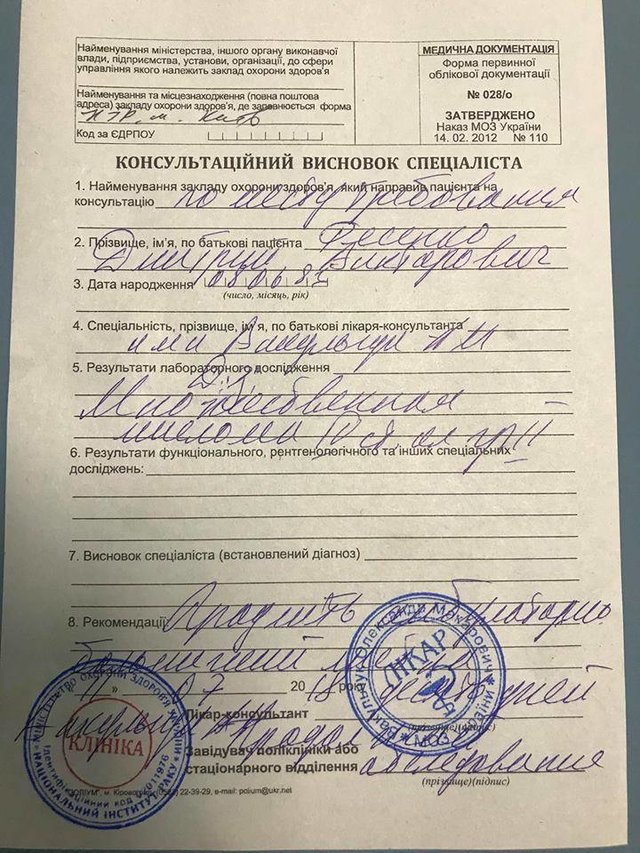 Найменування міністерства, іншого органу виконавчої
влади, підприємства, установи, організації, до сфери
управління якого належить заклад охорони здоров'я
Найменування та місцезнаходження (повна поштова
адреса) закладу охорони здоров'я, де заповнюється форма
м. Київ
Код за ЄДРПОУ
МЕДИЧНА ДОКУМЕНТАЦІЯ
Форма первинної
облікової документації
№ 028/о
ЗАТВЕРДЖЕНО
Наказ МОЗ України
14. 02. 2012 № 110
КОНСУЛЬТАЦІЙНИЙ ВИСНОВОК СПЕЦІАЛІСТА
1. Найменування закладу охорони здоров'я, який направив пацієнта на
консультацію по месту требования
2. Прізвище, ім'я, по батькові пацієнта Фесенко
Дмитрий Викторович
3. Дата народження
(число, місяць, рік)
4. Спеціальність, прізвище, ім'я, по батькові лікаря-консультанта
5. Результати лабораторного дослідження
Множественная
миелома
6. Результати функціонального, рентгенологічного та інших спеціальних
досліджень:
7. Висновок спеціаліста (встановлений діагноз)
8. Рекомендації
07 20 18 року
Лікар-консультант
(прізвище)(підпис)
Завідувач поліклініки або
стаціонарного відділення обследования
(прізвище)(підпис)
м. Кіровоград 22-39-29, e-mail: polium@ukr.net
МІНІСТЕРСТВО ОХОРОНИ ЗДОРОВ'Я УКРАЇНИ
НАЦІОНАЛЬНИЙ ІНСТИТУТ РАКУ
Ідентифікаційний код
КЛІНІКА
Олександр Макарович
ЛІКАР
МОЗ